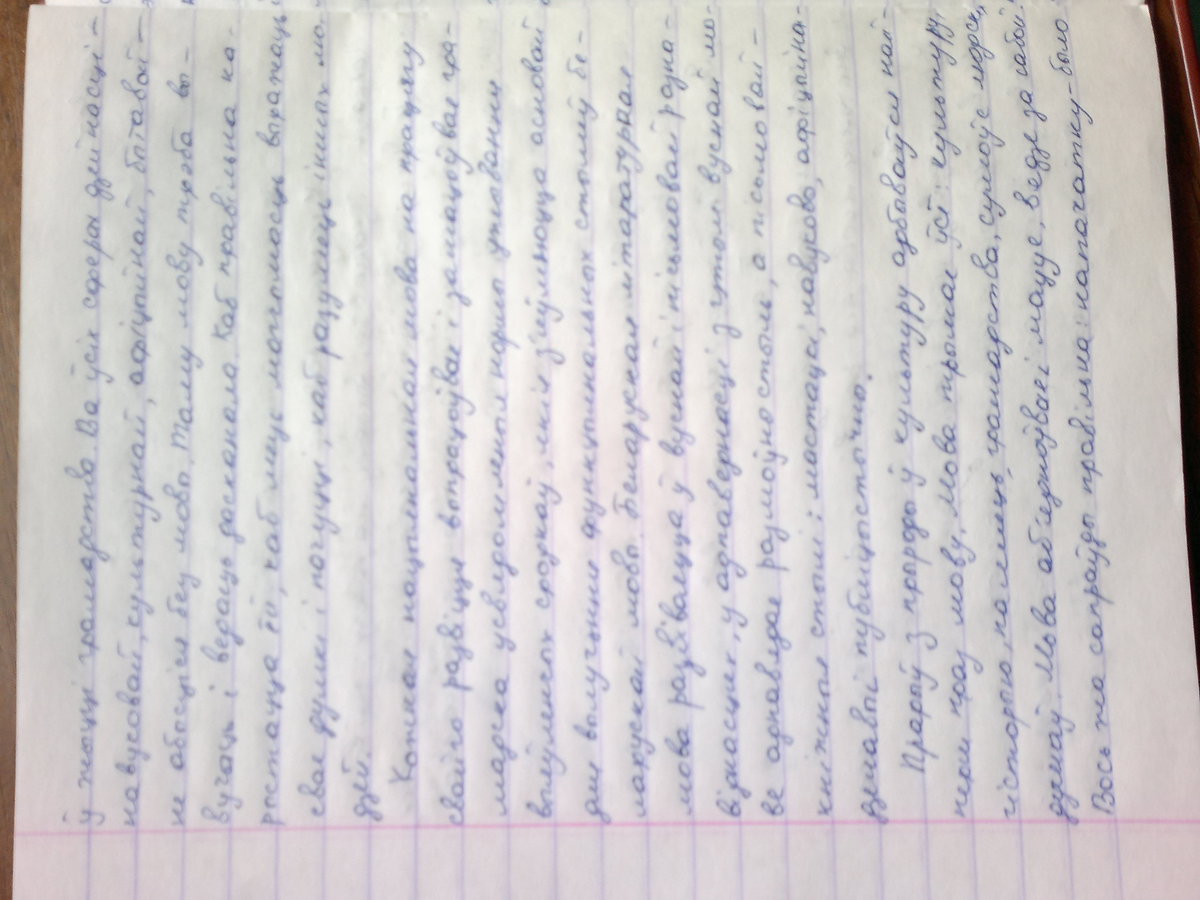 ў жыцці грамадства. Ва ўсіх сферах дзейнасці –
навуковай, культурнай, афіцыйнай, бытавой –
не абысціся без мовы. Таму мову трэба вы-
вучаць і ведаць дасканала. Каб правільна ка-
рыстацца ёю, каб мець магчымасць выражаць
свае думкі і пачуцці, каб разумець іншых лю-
дзей.
Кожная нацыянальная мова на працягу
свайго развіцця выпрацоўвае і замацоўвае гра-
мадска усвядомленыя нормы ужывання
моўных сродкаў, якія з'яўляюцца асновай
для вылучэння функцыянальных стыляў бе-
ларускай мовы. Беларуская літаратурная
мова развіваецца ў вуснай і пісьмовай разна-
віднасцях, у адпаведнасці з чым вуснай мо-
ве адпавядае размоўны стыль, а пісьмовай –
кніжныя стылі: мастацкі, навуковы, афіцыйна-
дзелавы і публіцыстычны.
Прарыў з прыроды ў культуру адбываўся най-
перш праз мову. Мова трымае ўсё: культуру,
гісторыю, памяць, грамадства, сумоўе людзей,
думкаў. Мова аб'ядноўвае і мацуе, вядзе за сабой.
Вось жа сапраўды правільна: напачатку – было